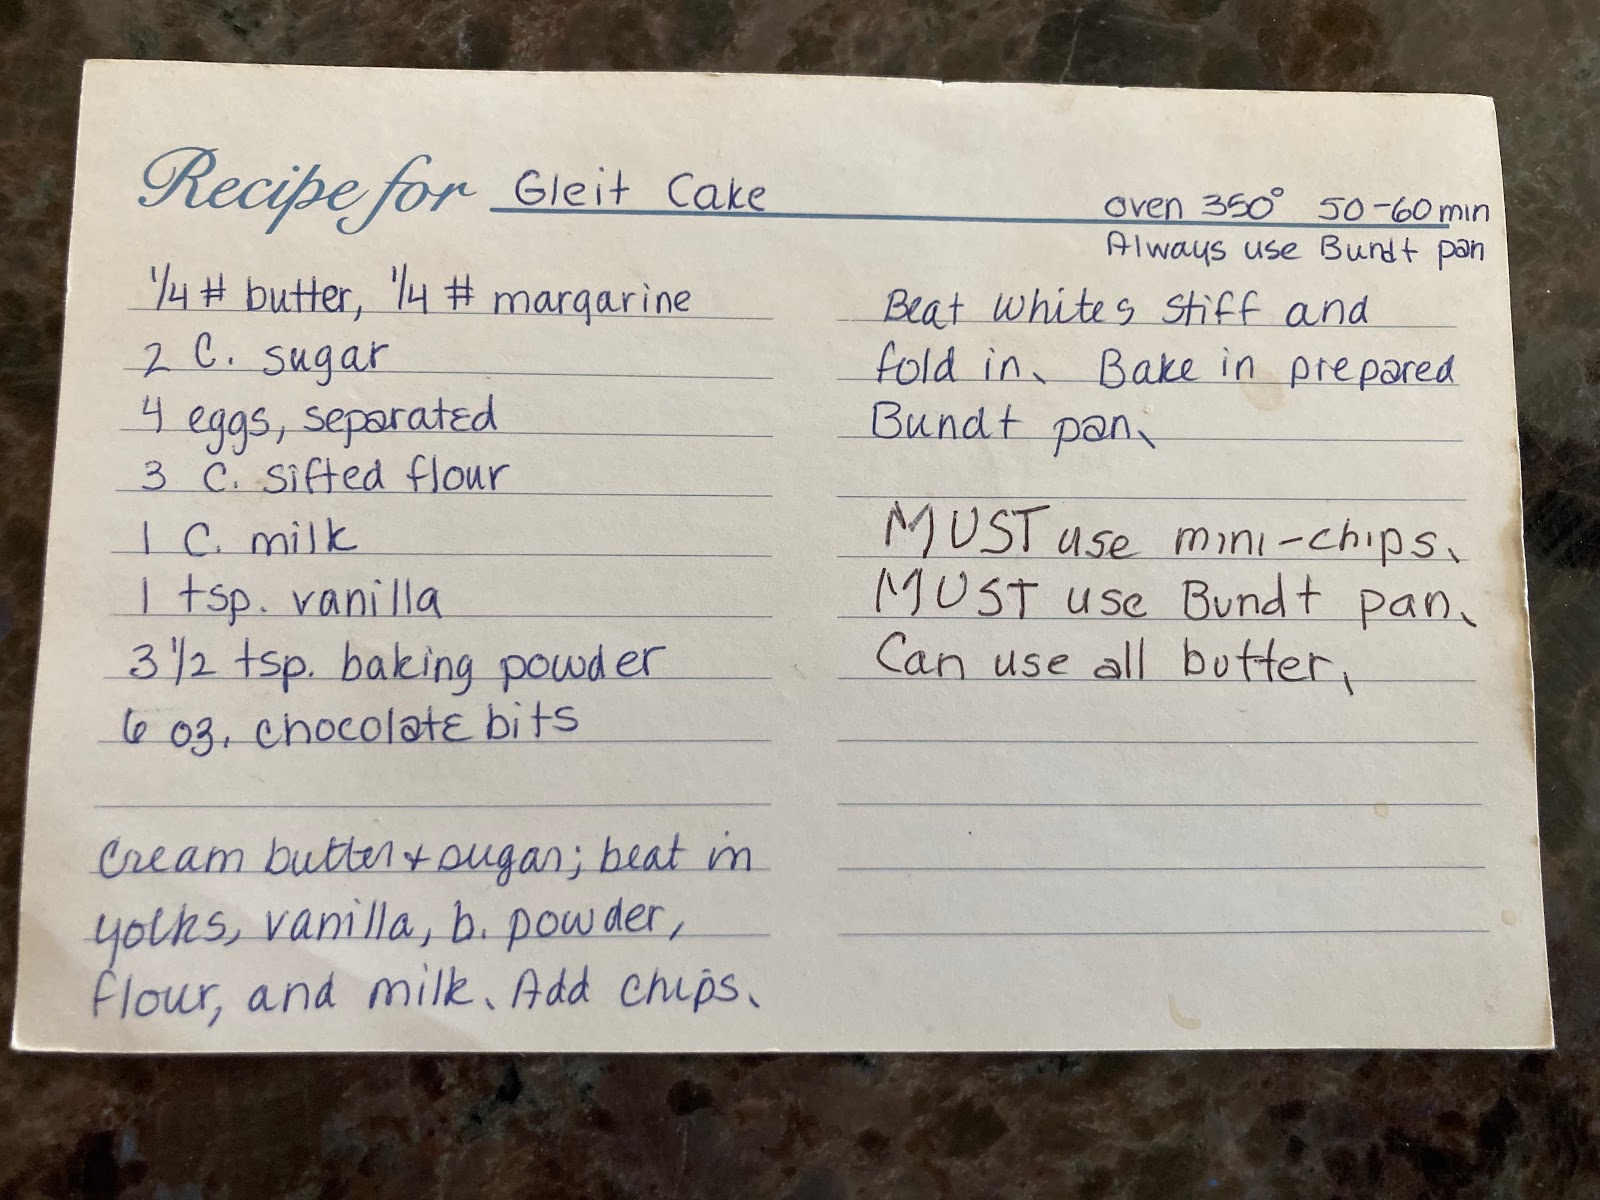 Recipe for Gleit Cake
oven 350° 50-60 min
Always use Bundt pan
1/4 # butter, 1/4 # margarine
2 C. sugar
4 eggs, separated
3 C. sifted flour
1 C. milk
1 tsp. vanilla
3 1/2 tsp. baking powder
6 oz. chocolate bits
Cream butter + sugar; beat in
yolks, vanilla, b. powder,
flour, and milk. Add chips.
Beat whites stiff and
fold in. Bake in prepared
Bundt pan.
MUST use mini-chips.
MUST use Bundt pan.
Can use all butter.